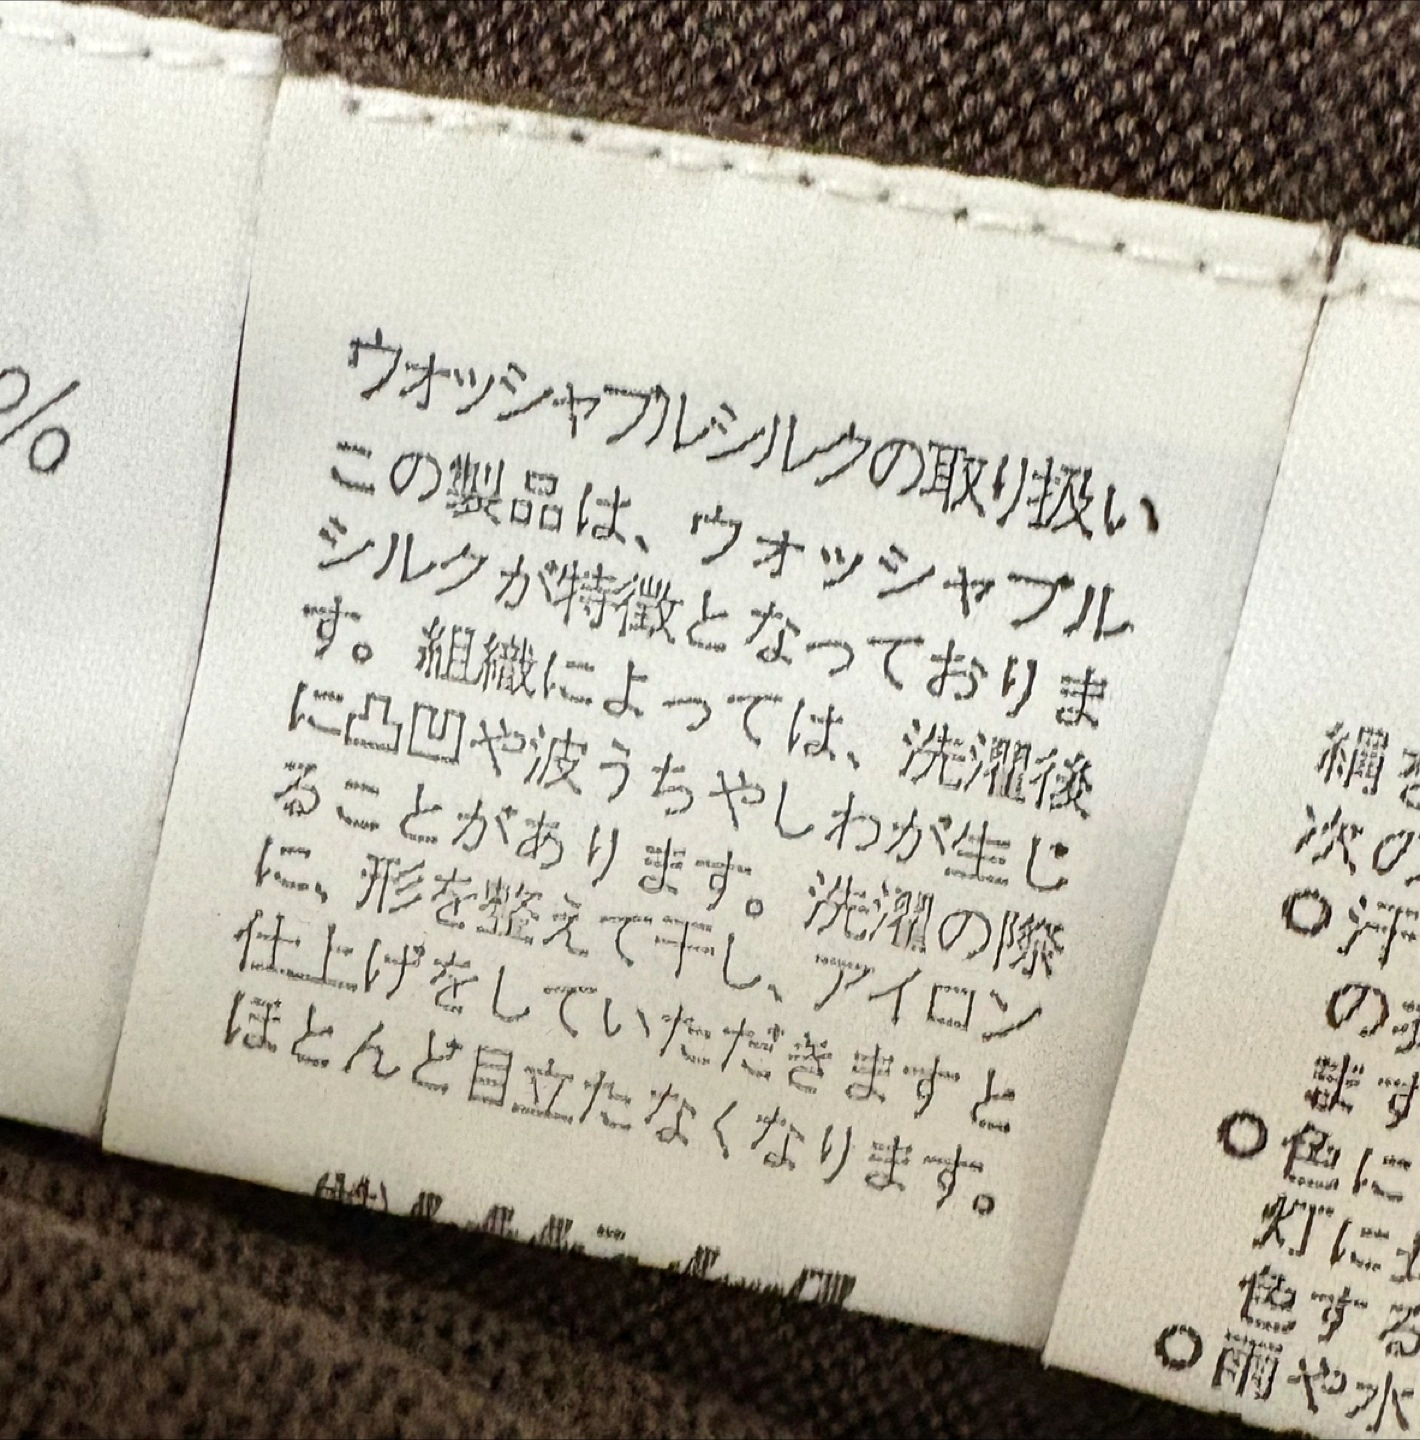 %
ウォッシャブルシルクの取り扱い
この製品は、ウォッシャブル
シルクが特徴となっておりま
す。組織によっては、洗濯後
に凸凹や波うちやしわが生じ
ることがあります。洗濯の際
に、形を整えて干し、アイロン
仕上げをしていただきますと
ほとんど目立たなくなります。
の
色に
灯に
雨や水